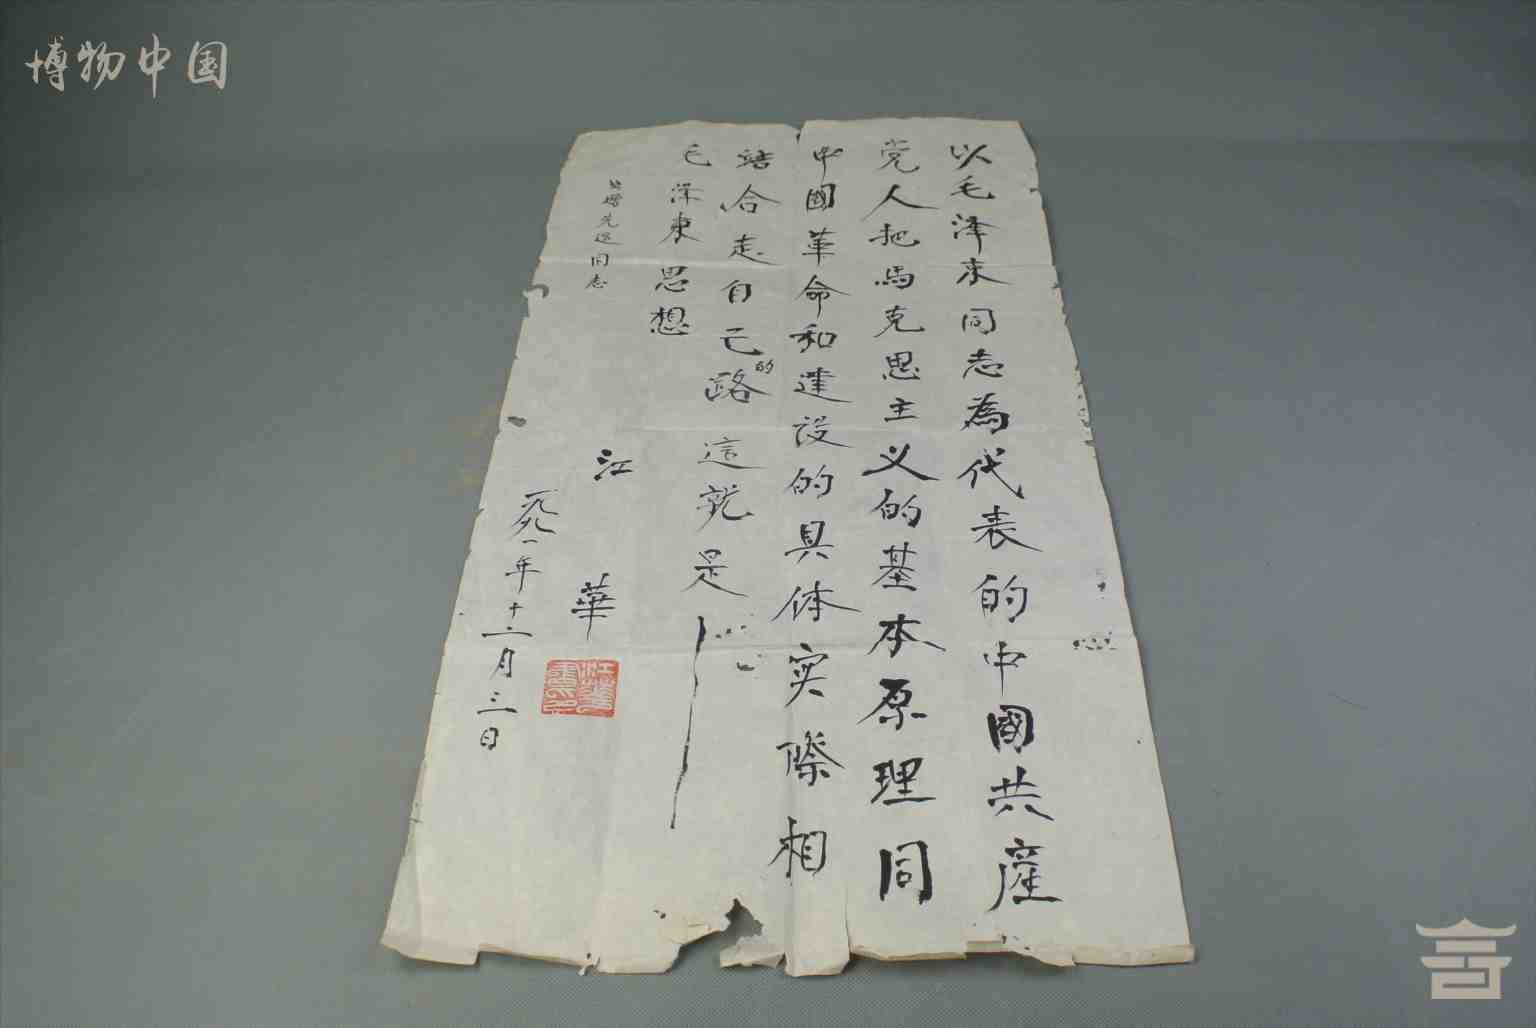 博物中国
以毛泽东同志為代表的中國共產
党人把馬克思主义的基本原理同
中國革命和建设的具体实際相
结合走自己的路這就是——
毛泽東思想
先送同志
江華
一九九一年十二月三日
江華